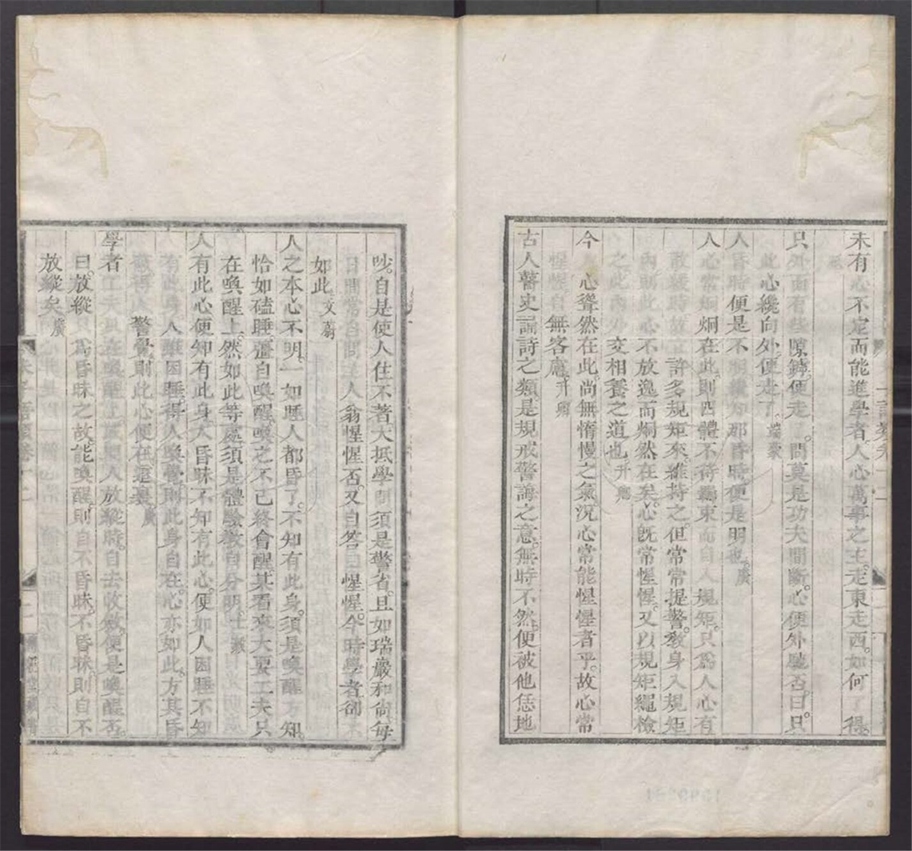 未有心不定而能進學者人心萬事之主走東走西如何了得
只外面有些隙罅便走了問莫是功夫間斷心便外馳否曰只
此心纔向外便走了端蒙
人昏時便是不明纔知那昏時便是明也廣
人心常炯炯在此則四體不待羈束而自入規矩只為人心有
散緩時故立許多規矩來維持之但常常提警教身入規矩
內則此心不放逸而炯然在矣心既常惺惺又以規矩繩檢
之此內外交相養之道也升卿
今人心聳然在此尚無惰慢之氣況心常能惺惺者乎故心常
惺惺自無客慮升卿
古人瞽史誦詩之類是規戒警誨之意無時不然便被他恁地
吵自是使人住不著大抵學問須是警省且如瑞巖和尚每
日間常自問主人翁惺惺否又自答曰惺惺今時學者卻不
如此文蔚
人之本心不明一如睡人都昏了不知有此身須是喚醒方知
恰如磕睡彊自喚醒喚之不已終會醒某看來大要工夫只
在喚醒上然如此等處須是體驗教自分明士毅
人有此心便知有此身人昏昧不知有此心便如人困睡不知
有此身人雖困睡得人喚覺則此身自在心亦如此方其昏
蔽得人警覺則此心便在這裏廣
學者工夫只在喚醒上或問人放縱時自去收斂便是喚醒否
曰放縱只為昏昧之故能喚醒則自不昏昧不昏昧則自不
放縱矣廣